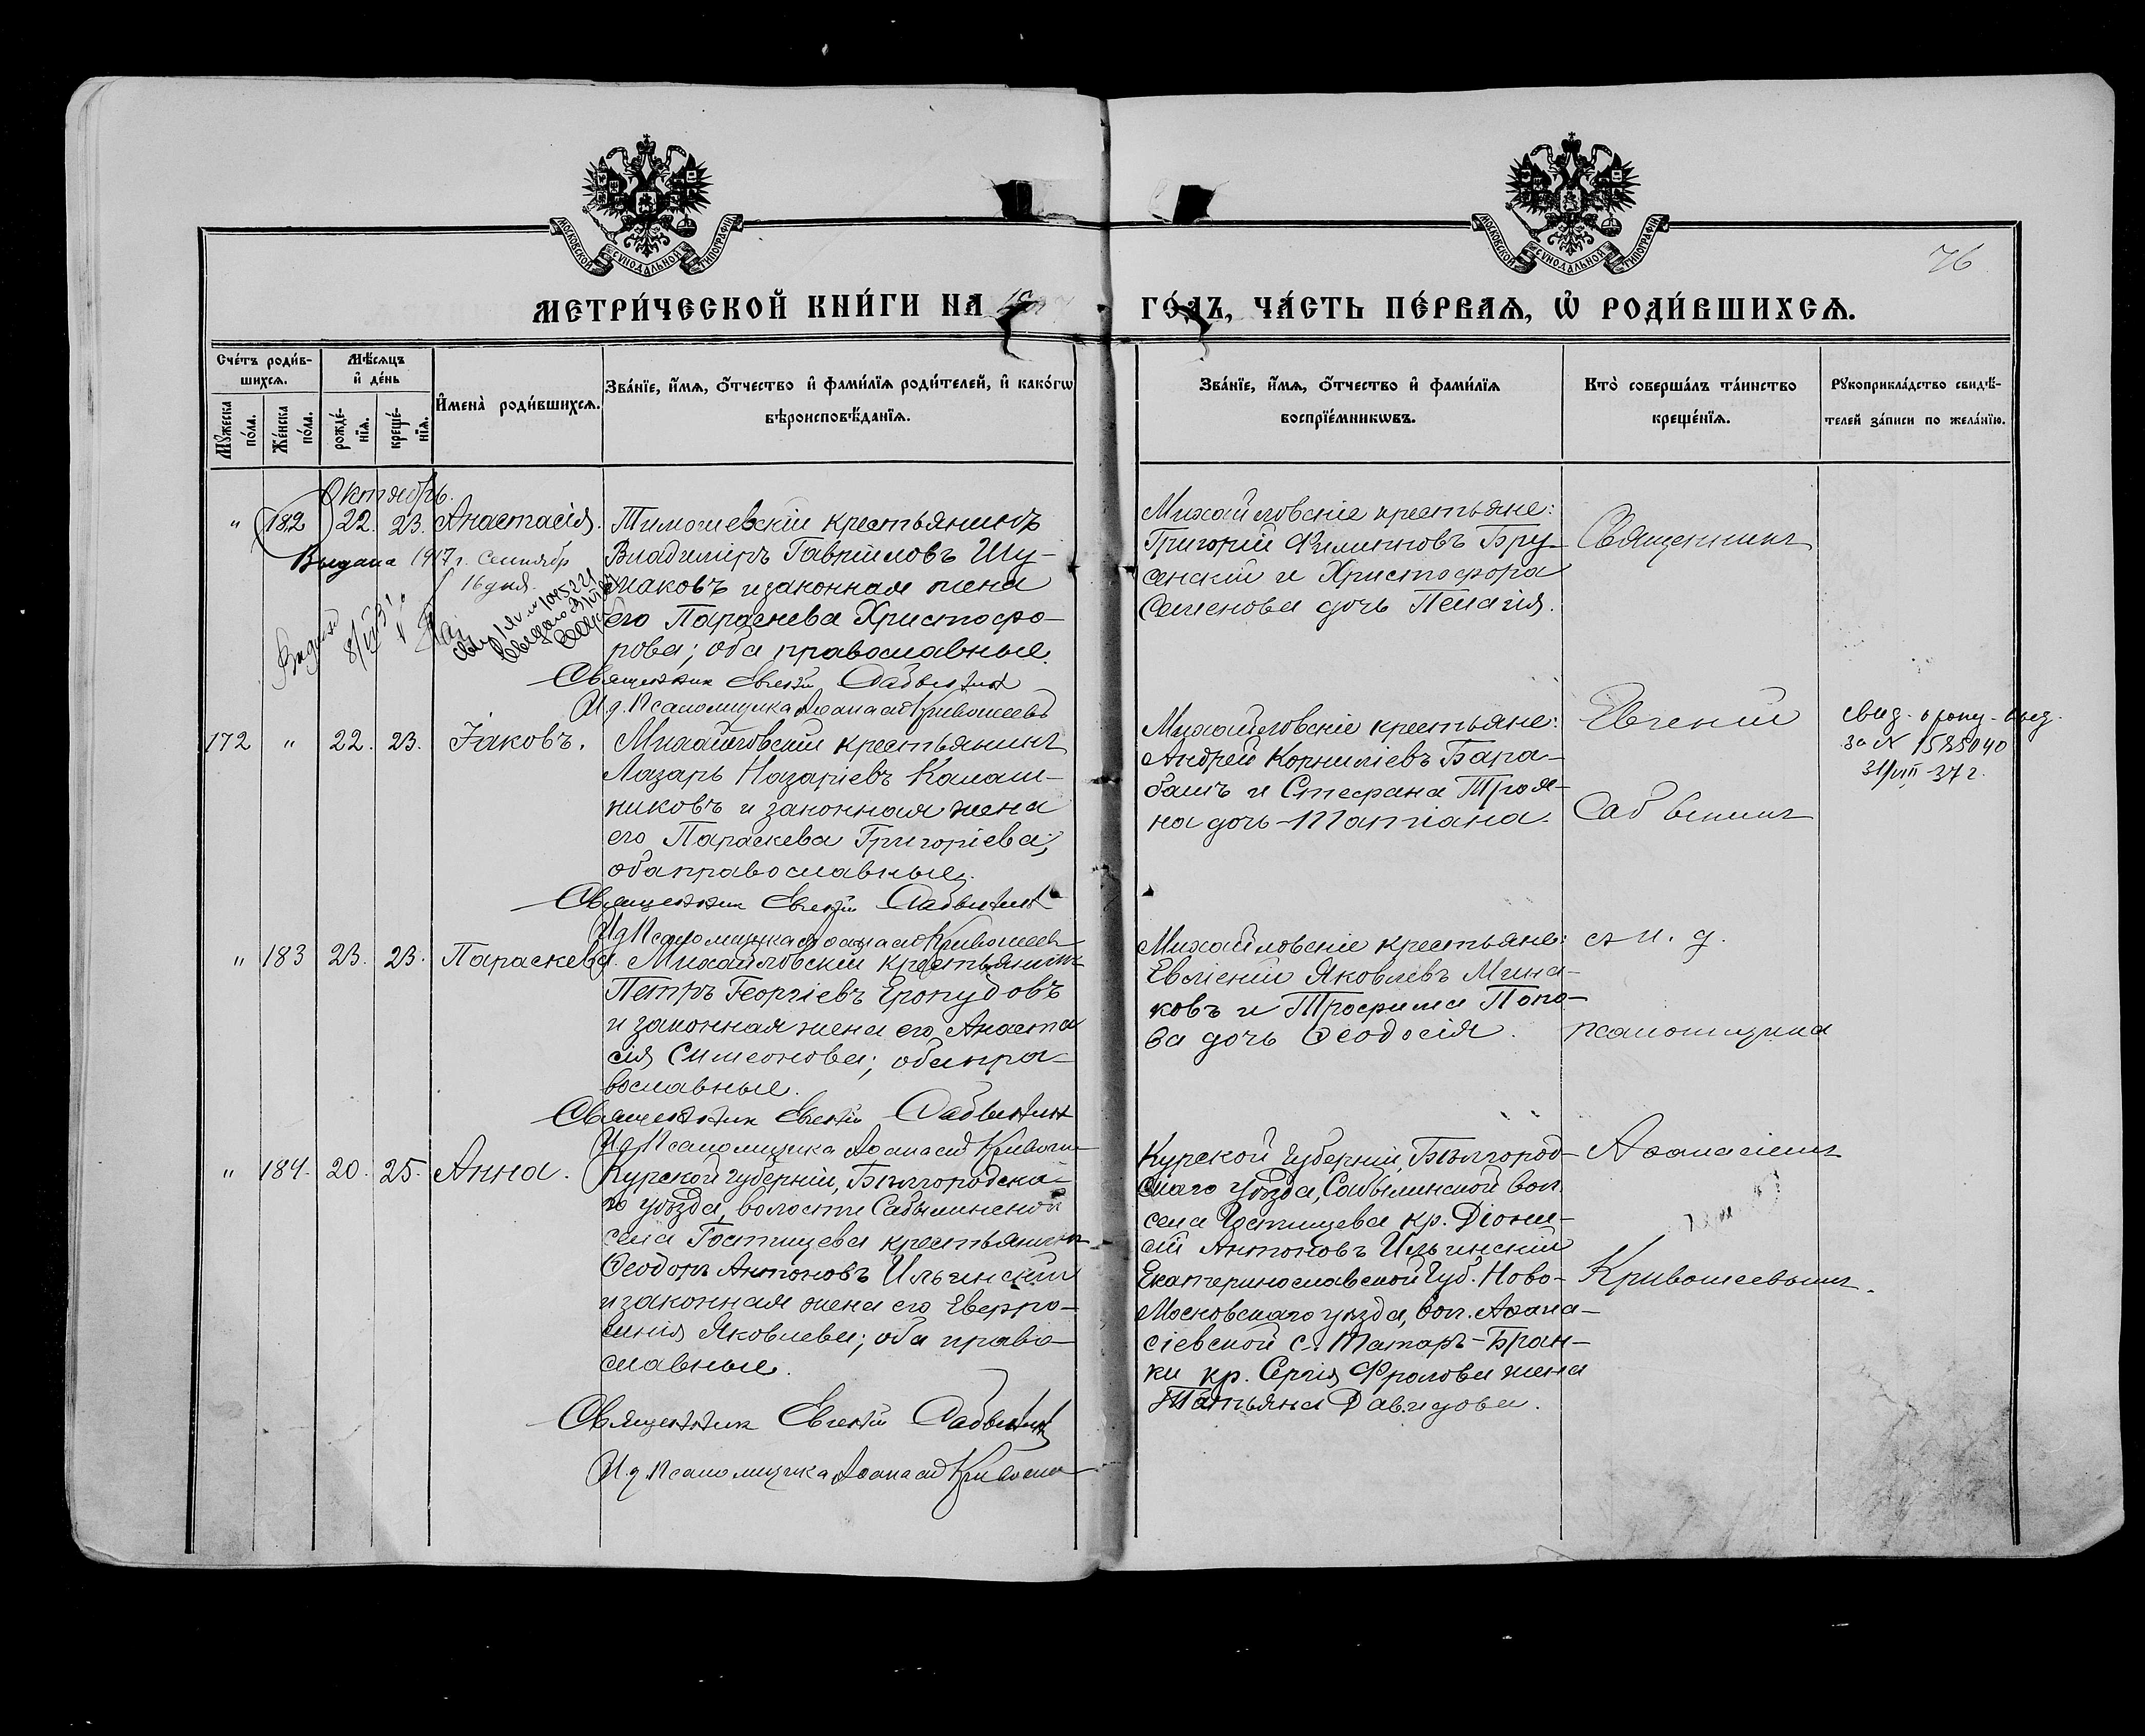 МОСКОВСКОЙ СѴНОДАЛЬНОЙ ТИПОГРАФІИ
МОСКОВСКОЙ СѴНОДАЛЬНОЙ ТИПОГРАФІИ
76
МЕТРИ́ЧЕСКОЙ КНИ́ГИ НА
ГО́ДЪ, ЧА́СТЬ ПЕ́РВАѦ, Ѡ҆ РОДИ́ВШИХСѦ.
Сче́тъ роди́в-
шихсѧ.
Мѣ́сѧцъ
и҆ де́нь
Мꙋ́жеска по́ла.
Же́нска по́ла.
рожде́-
нїѧ.
креще́-
нїѧ.
И҆мена̀ роди́вшихсѧ.
Зва́нїе, и҆́мѧ, ѻ҆́тчество и҆ фами́лїѧ роди́телей, и҆ како́гѡ
вѣроисповѣ́данїѧ.
Зва́нїе, и҆́мѧ, ѻ҆́тчество и҆ фами́лїѧ
воспрїе́мникѡвъ.
Кто̀ соверша́лъ та́инство
креще́нїѧ.
Рꙋкоприкла́дство свидѣ́-
телей за́писи по жела́нїю.
Октябрь.
" 182 22. 23. Анастасія.
Выдана 1917 г. Сентябр
16 дня.
Тимошевскій крестьянинъ
Владиміръ Гавріиловъ Шу-
маковъ и законная жена
его Параскева Христофо-
рова; оба православные.
Священник Евгеній Саввинъ
И. д. Псаломщика Аѳанасій Кривошеевъ
Михайловскіе крестьяне:
Григорій Филипповъ Бру-
сенскій и Христофора
Семенова дочь Пелагія.
Священникъ
172 " 22. 23. Іаковъ.
Михайловскій крестьянинъ
Лазарь Назаріевъ Калаш-
никовъ и законная жена
его Параскева Григоріева;
оба православные.
Священник Евгеній Саввинъ
И д Псаломщика Аѳанасій Кривошеевъ
Михайловскіе крестьяне:
Андрей Корниліевъ Бара-
башъ и Стефана Троя-
на дочь Татіана.
Евгеній
Саввинъ
свид. о рожд. выд.
за N 1585040
31/VIII-37 г.
" 183 23. 23. Параскева.
Михайловскій крестьянинъ
Петръ Георгіевъ
и законная жена его Анаста
сія Симеонова; оба пра-
вославные.
Священник Евгеній Саввинъ
И д Псаломщика Аѳанасій
Михайловскіе крестьяне:
Евмений Яковлевъ Мина-
ковъ и Трофима Попо-
ва дочь Ѳеодосія.
съ и. д.
псаломщика
" 184. 20. 25. Анна.
Курской губерніи, Бѣлгородска-
го уѣзда, волости Сабынинской
села Гостищева крестьянинъ
Ѳеодоръ Антоновъ Ильинскій
и законная жена его Евфро-
синія Яковлева; оба право-
славные.
Священник Евгеній Саввинъ
И. д. Псаломщика Аѳанасій
Курской губерніи, Бѣлгород-
скаго уѣзда, Сабынинской вол.
села Гостищева кр. Діони-
сій Антоновъ Ильинскій
Екатеринославской Губ. Ново-
Московскаго уѣзда, вол. Аѳана-
сіевской с. Татаръ-Бран-
ки кр. Сергія Фролова жена
Татьяна Давидова.
Аѳанасіемъ
Кривошеевымъ.